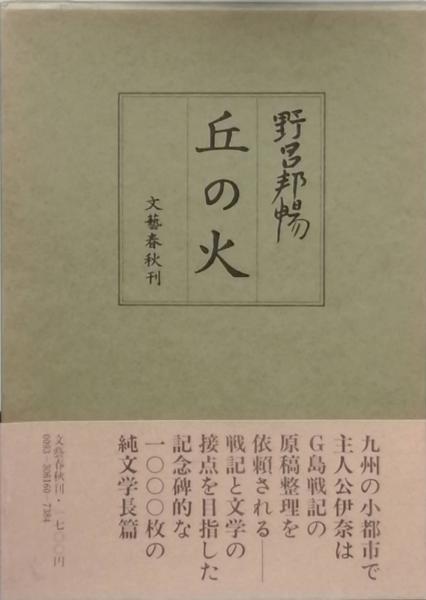 野呂邦暢
丘の火
文藝春秋刊
九州の小都市で
主人公伊奈は
G島戦記の
原稿整理を
依頼される──
戦記と文学の
接点を目指した
記念碑的な
一〇〇〇枚の
純文学長篇
文藝春秋刊・一七〇〇円
0093-306160-7384